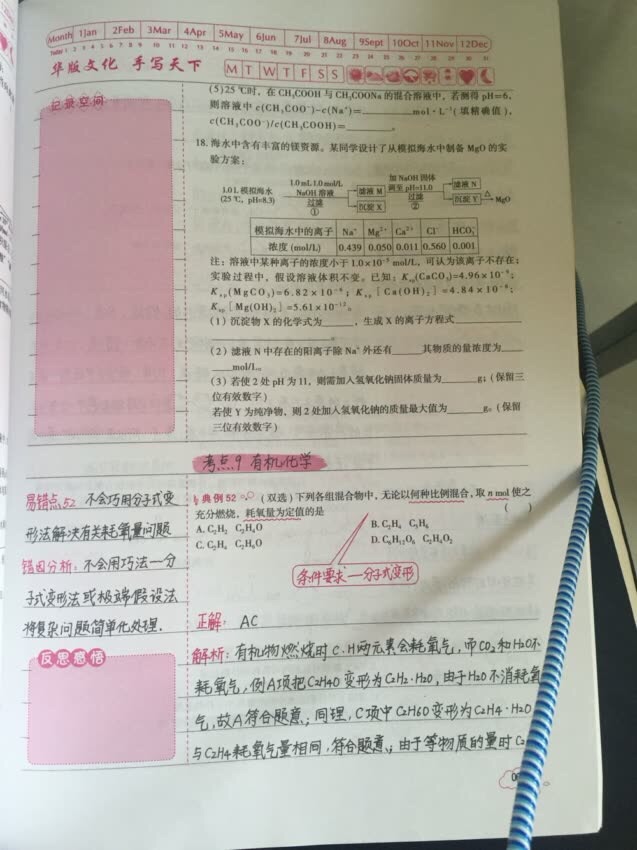 Month 1Jan 2Feb 3Mar 4Apr 5May 6Jun 7Jul 8Aug 9Sept 10Oct 11Nov 12Dec
华版文化 手写天下
M T W T F S S
记录空间
(5)25℃时,在CH₃COOH与CH₃COONa的混合溶液中,若测得pH=6,
则溶液中c(CH₃COO⁻)-c(Na⁺)=________mol·L⁻¹(填精确值),
c(CH₃COO⁻)/c(CH₃COOH)=________。
18.海水中含有丰富的镁资源。某同学设计了从模拟海水中制备MgO的实
验方案:
1.0L模拟海水 (25℃, pH=8.3) 1.0mL1.0mol/L NaOH溶液 过滤 ① 滤液M 沉淀X 加NaOH固体 调至pH=11.0 过滤 ② 滤液N 沉淀Y △ MgO
模拟海水中的离子 Na⁺ Mg²⁺ Ca²⁺ Cl⁻ HCO₃⁻
浓度(mol/L) 0.439 0.050 0.011 0.560 0.001
注:溶液中某种离子的浓度小于1.0×10⁻⁵mol/L,可认为该离子不存在;
实验过程中,假设溶液体积不变。已知:Ksp(CaCO₃)=4.96×10⁻⁹;
Ksp(MgCO₃)=6.82×10⁻⁶;Ksp[Ca(OH)₂]=4.84×10⁻⁶;
Ksp[Mg(OH)₂]=5.61×10⁻¹²。
(1)沉淀物X的化学式为______,生成X的离子方程式________
________________。
(2)滤液N中存在的阳离子除Na⁺外还有______其物质的量浓度为____
____mol/L。
(3)若使2处pH为11,则需加入氢氧化钠固体质量为______g;(保留三
位有效数字)
若使Y为纯净物、则2处加入氢氧化钠的质量最大值为______g。(保留
三位有效数字)
考点9 有机化学
易错点52 不会巧用分子式变
形法解决有关耗氧量问题
错因分析:不会用巧法—分
子式变形法或极端假设法
将复杂问题简单化处理.
反思感悟
典例52 (双选)下列各组混合物中,无论以何种比例混合,取n mol使之
充分燃烧,耗氧量为定值的是 ( )
A.C₂H₂ C₂H₄O B.C₂H₄ C₃H₆
C.C₂H₄ C₂H₆O D.C₆H₁₂O₆ C₂H₄O₂
条件要求—分子式变形
正解: AC
解析:有机物燃烧时C、H两元素会耗氧气,而CO₂和H₂O不
耗氧气,例A项把C₂H₄O变形为C₂H₂·H₂O,由于H₂O不消耗氧
气,故A符合题意;同理,C项中C₂H₆O变形为C₂H₄·H₂O
与C₂H₄耗氧气量相同,符合题意;由于等物质的量时C₂